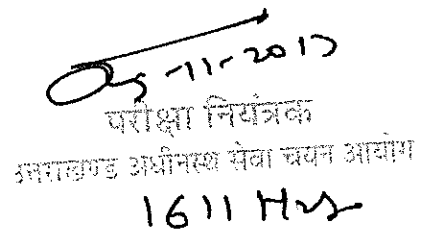 -11-2017
परीक्षा नियंत्रक
उत्तराखण्ड अधीनस्थ सेवा चयन आयोग
1611 Hrs